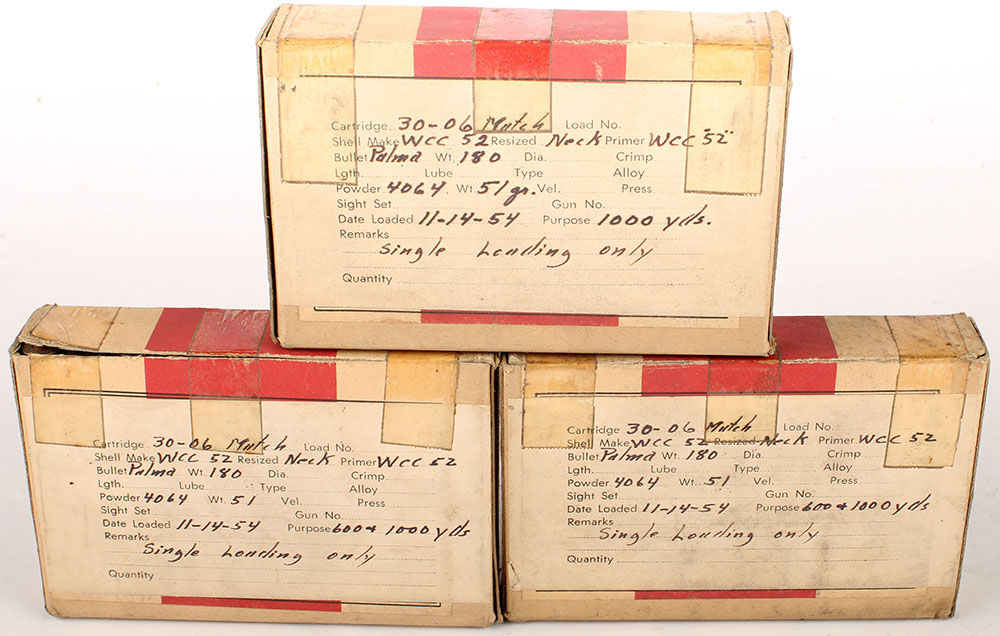 Cartridge 30-06 Match Load No.
Shell Make WCC 52 Resized Neck Primer WCC "52"
Bullet Palma Wt. 180 Dia. Crimp
Lgth. Lube Type Alloy
Powder 4064 Wt. 51 gr. Vel. Press
Sight Set Gun No.
Date Loaded 11-14-54 Purpose 1000 yds.
Remarks
Single Loading only
Quantity
Cartridge 30-06 Match Load No.
Shell Make WCC 52 Resized Neck Primer WCC 52
Bullet Palma Wt. 180 Dia. Crimp
Lgth. Lube Type Alloy
Powder 4064 Wt. 51 Vel. Press
Sight Set Gun No.
Date Loaded 11-14-54 Purpose 600 & 1000 yds
Remarks
Single Loading only
Quantity
Cartridge 30-06 Match Load No.
Shell Make WCC 52 Resized Neck Primer WCC 52
Bullet Palma Wt. 180 Dia. Crimp
Lgth. Lube Type Alloy
Powder 4064 Wt. 51 Vel. Press
Sight Set Gun No.
Date Loaded 11-14-54 Purpose 600 & 1000 yds
Remarks
Single Loading only
Quantity